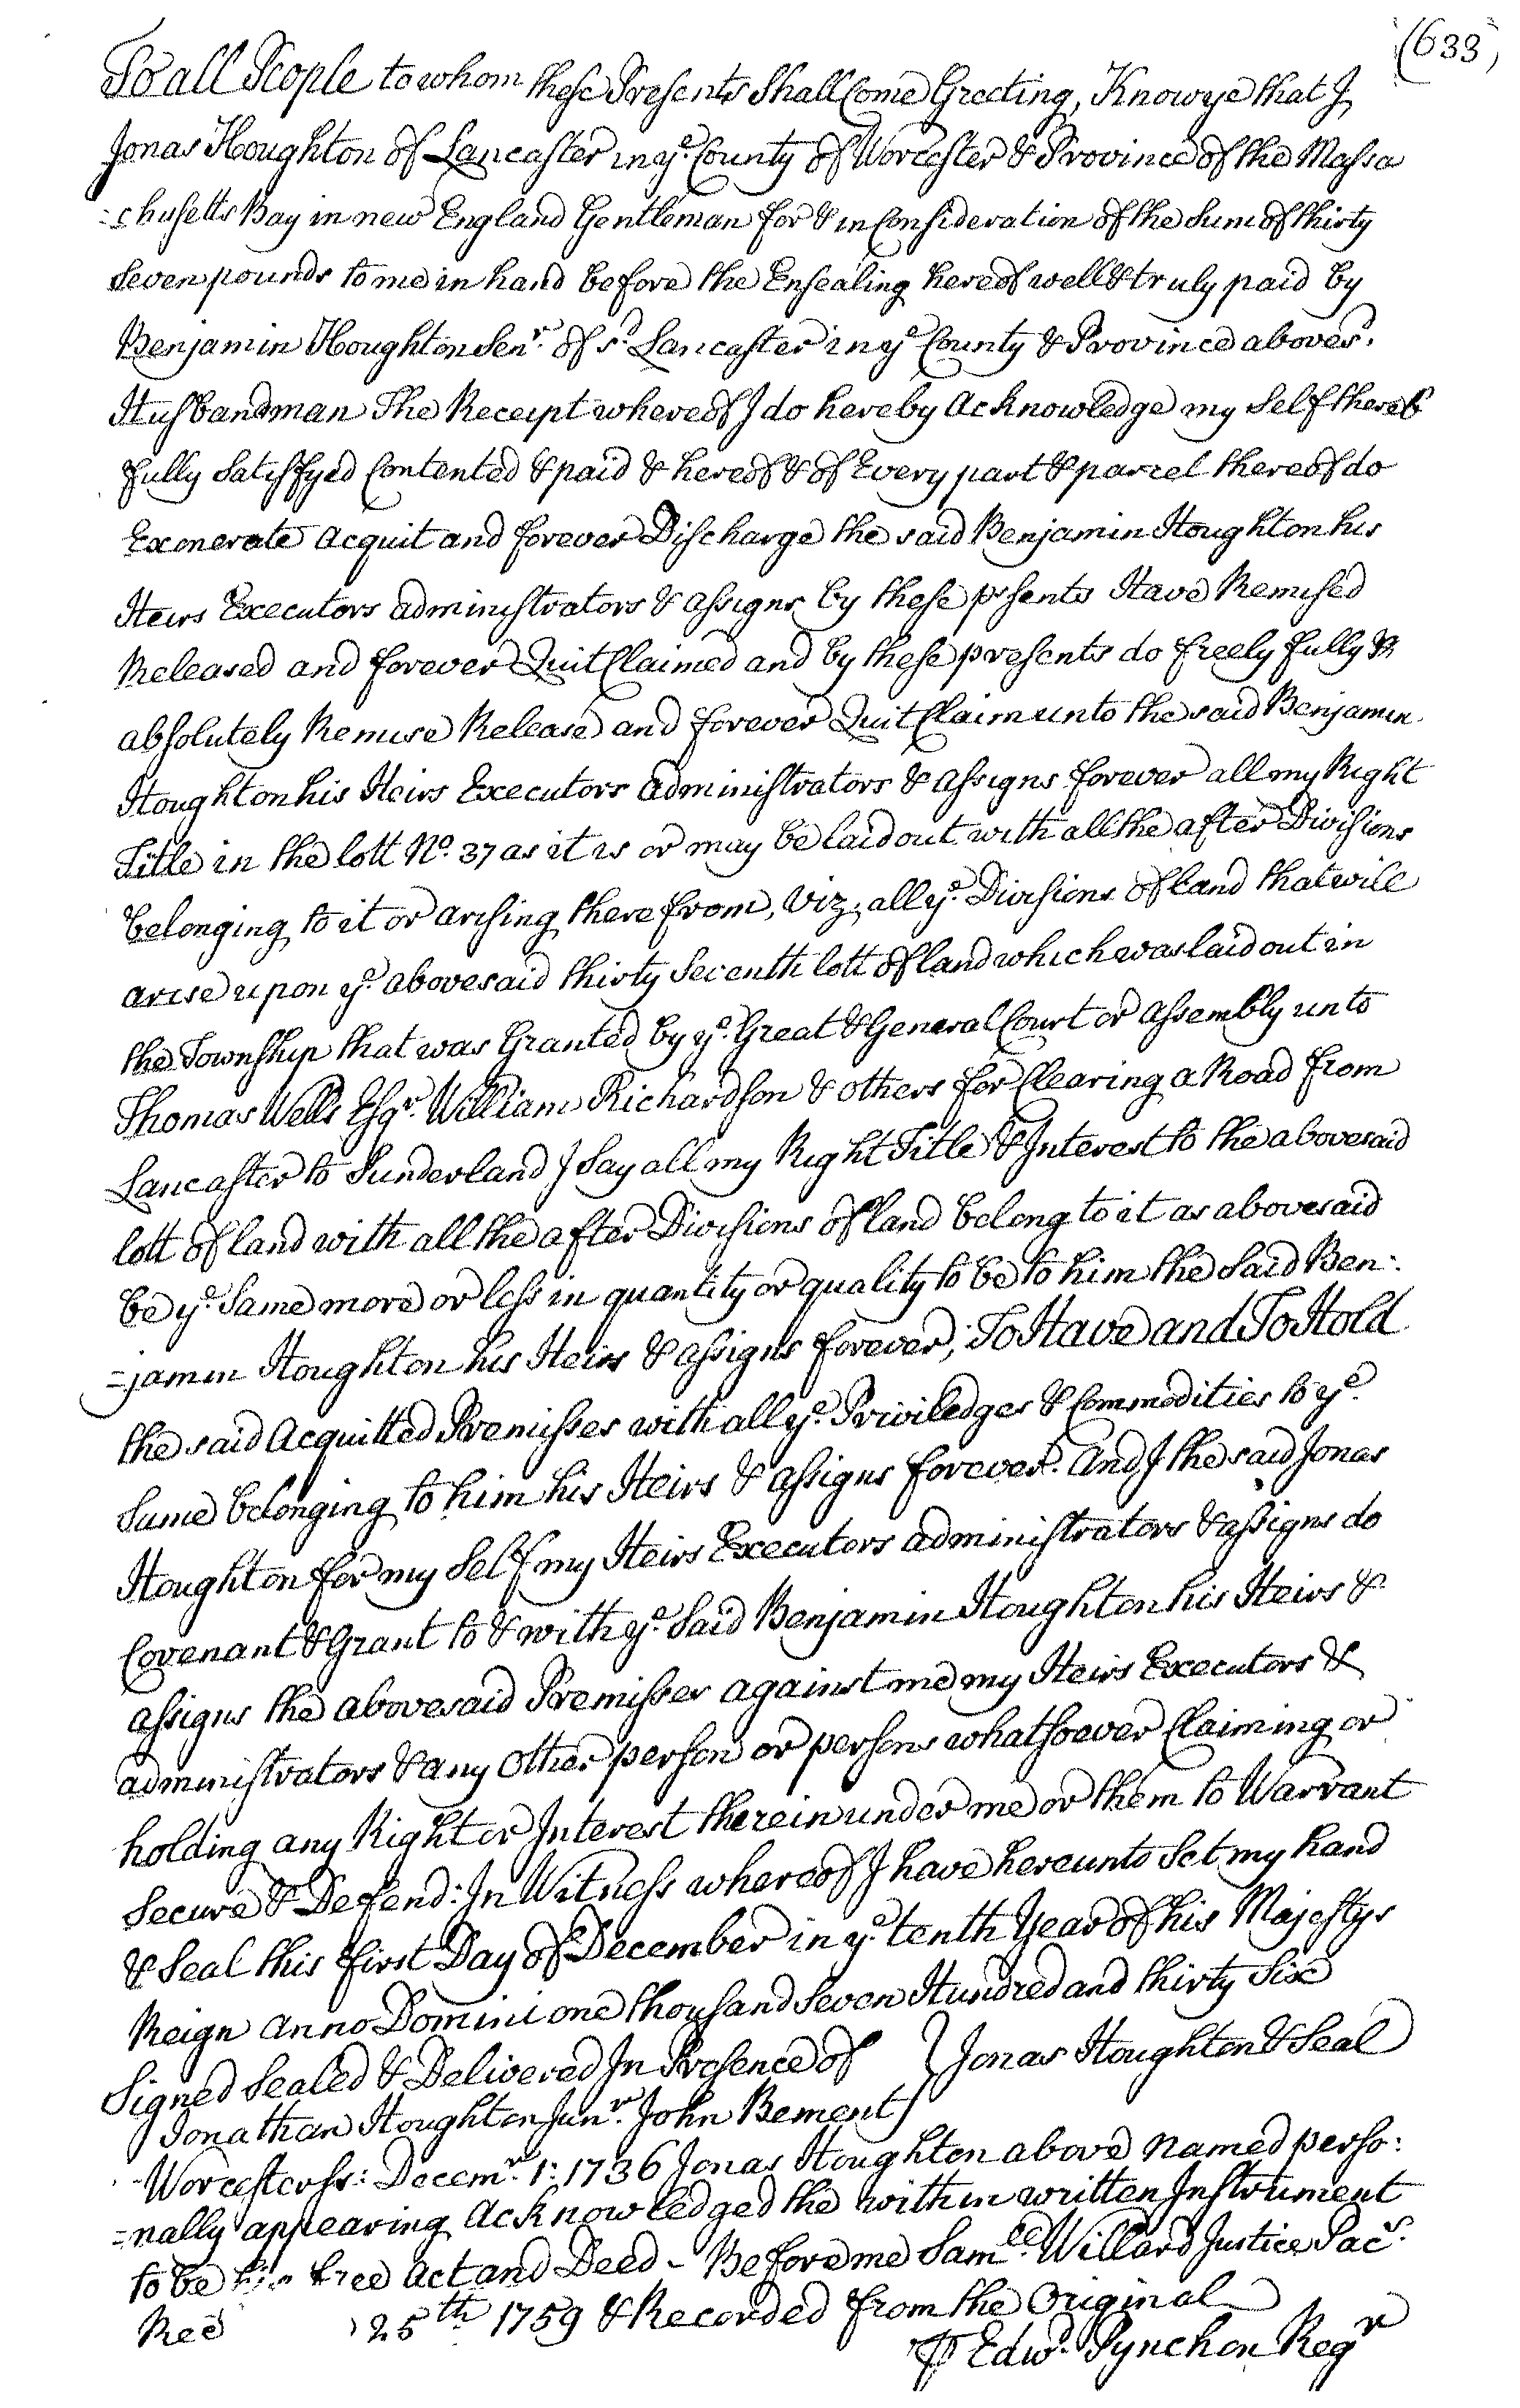 (633)
To all People to whom these Presents Shall Come Greeting, Know ye that I
Jonas Houghton of Lancaster in ye. County of Worcester & Province of the Massa
=chusetts Bay in new England Gentleman for & in Consideration of the Sum of thirty
Seven pounds to me in hand before the Ensealing hereof well & truly paid by
Benjamin Houghton Senr. of sd. Lancaster in ye County & Province aboves.d
Husbandman The Receipt whereof I do hereby Acknowledge my Self thereof
fully Satisfyed Contented & paid & hereof & of Every part & parcel thereof do
Exonerate acquit and forever Discharge the said Benjamin Houghton his
Heirs Executors administrators & assigns by these psents Have Remised
Released and forever Quit Claimed and by these presents do freely fully &
absolutely Remise Release and forever Quit Claim unto the said Benjamin
Houghton his Heirs Executors administrators & assigns forever all my Right
Title in the lott No. 37 as it is or may be laid out with all the after Divisions
belonging to it or arising there from, Viz; all ye. Divisions of land that will
arise upon ye. abovesaid thirty Seventh lott of land which was laid out in
the Township that was Granted by ye. Great & General Court or assembly unto
Thomas Wells Esqr. William Richardson & others for Clearing a Road from
Lancaster to Sunderland I Say all my Right Title & Interest to the abovesaid
lott of land with all the after Divisions of land belong to it as abovesaid
be ye. Same more or less in quantity or quality to be to him the Said Ben:
=jamin Houghton his Heirs & assigns forever; To Have and To Hold
the said Acquitted Premisses with all ye. Priviledges & Commodities to ye.
Same belonging to him his Heirs & assigns forever. And I the said Jonas
Houghton for my Self my Heirs Executors administrators & assigns do
Covenant & Grant to & with ye. Said Benjamin Houghton his Heirs &
assigns the abovesaid Premisses against me my Heirs Executors &
administrators & any other person or persons whatsoever Claiming or
holding any Right or Interest therein under me or them to Warrant
Secure & Defend: In Witness whereof I have hereunto Set my hand
& Seal this first Day of December in ye. tenth Year of his Majestys
Reign Anno Domini one thousand Seven Hundred and thirty Six
Signed Sealed & Delivered In Presence of } Jonas Houghton & Seal
Jonathan Houghton Junr. John Bement
Worcester ss: Decemr. 1: 1736 Jonas Houghton above named perso:
=nally appearing Acknowledged the within written Instrument
to be his free Act and Deed - Before me Samll. Willard Justice Pacs.
Recd 25th 1759 & Recorded from the Original
Edwd. Pynchon Regr